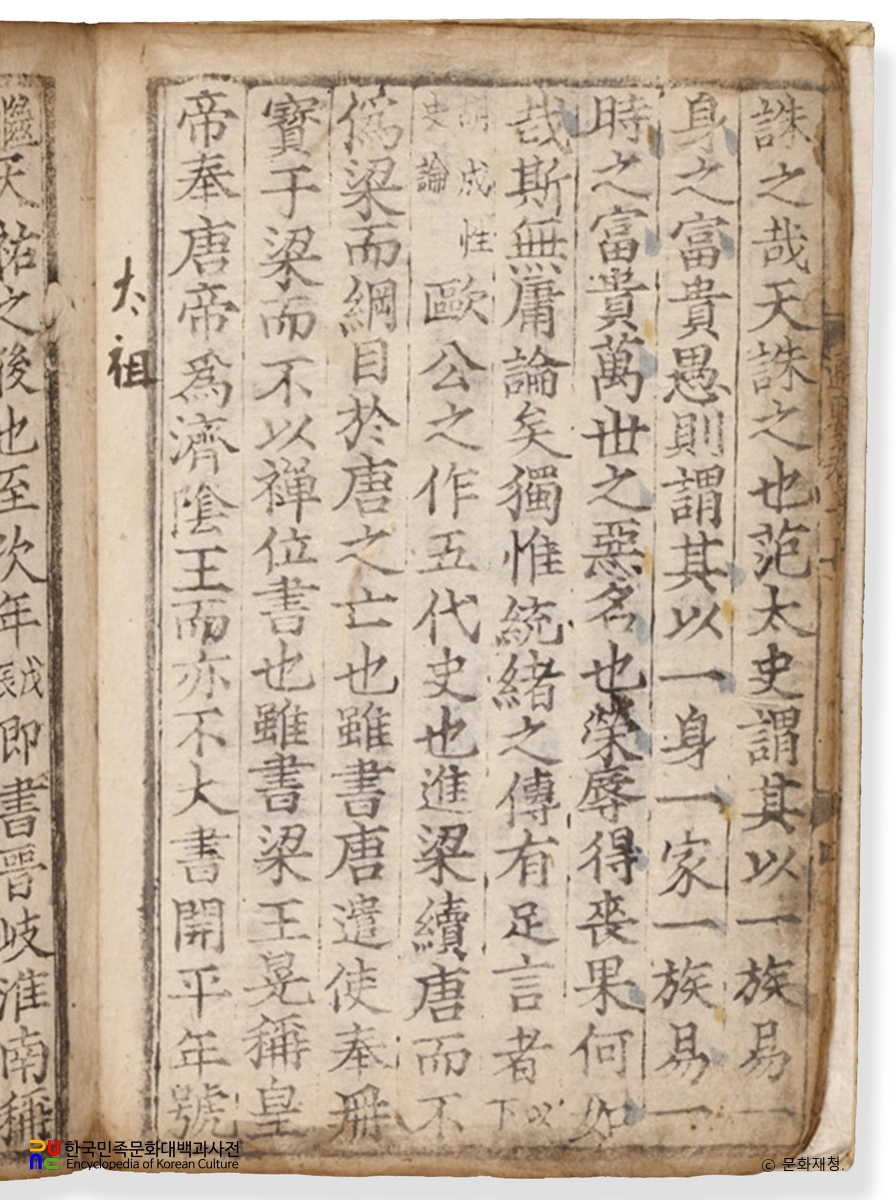 誅之哉天誅之也范太史謂其以一族易一
身之富貴愚則謂其以一身一家一族易一
時之富貴萬世之惡名也榮辱得喪果何如
哉斯無庸論矣獨惟統緒之傳有足言者以下
胡成性史論歐公之作五代史也進梁續唐而不
僞梁而綱目於唐之亡也雖書唐遣使奉冊
寶于梁而不以禪位書也雖書梁王晃稱皇
帝奉唐帝爲濟陰王而亦不大書開平年號
太祖
天祐之後也至次年戊辰即書晉岐淮南稱
한국민족문화대백과사전
Encyclopedia of Korean Culture
© 문화재청.